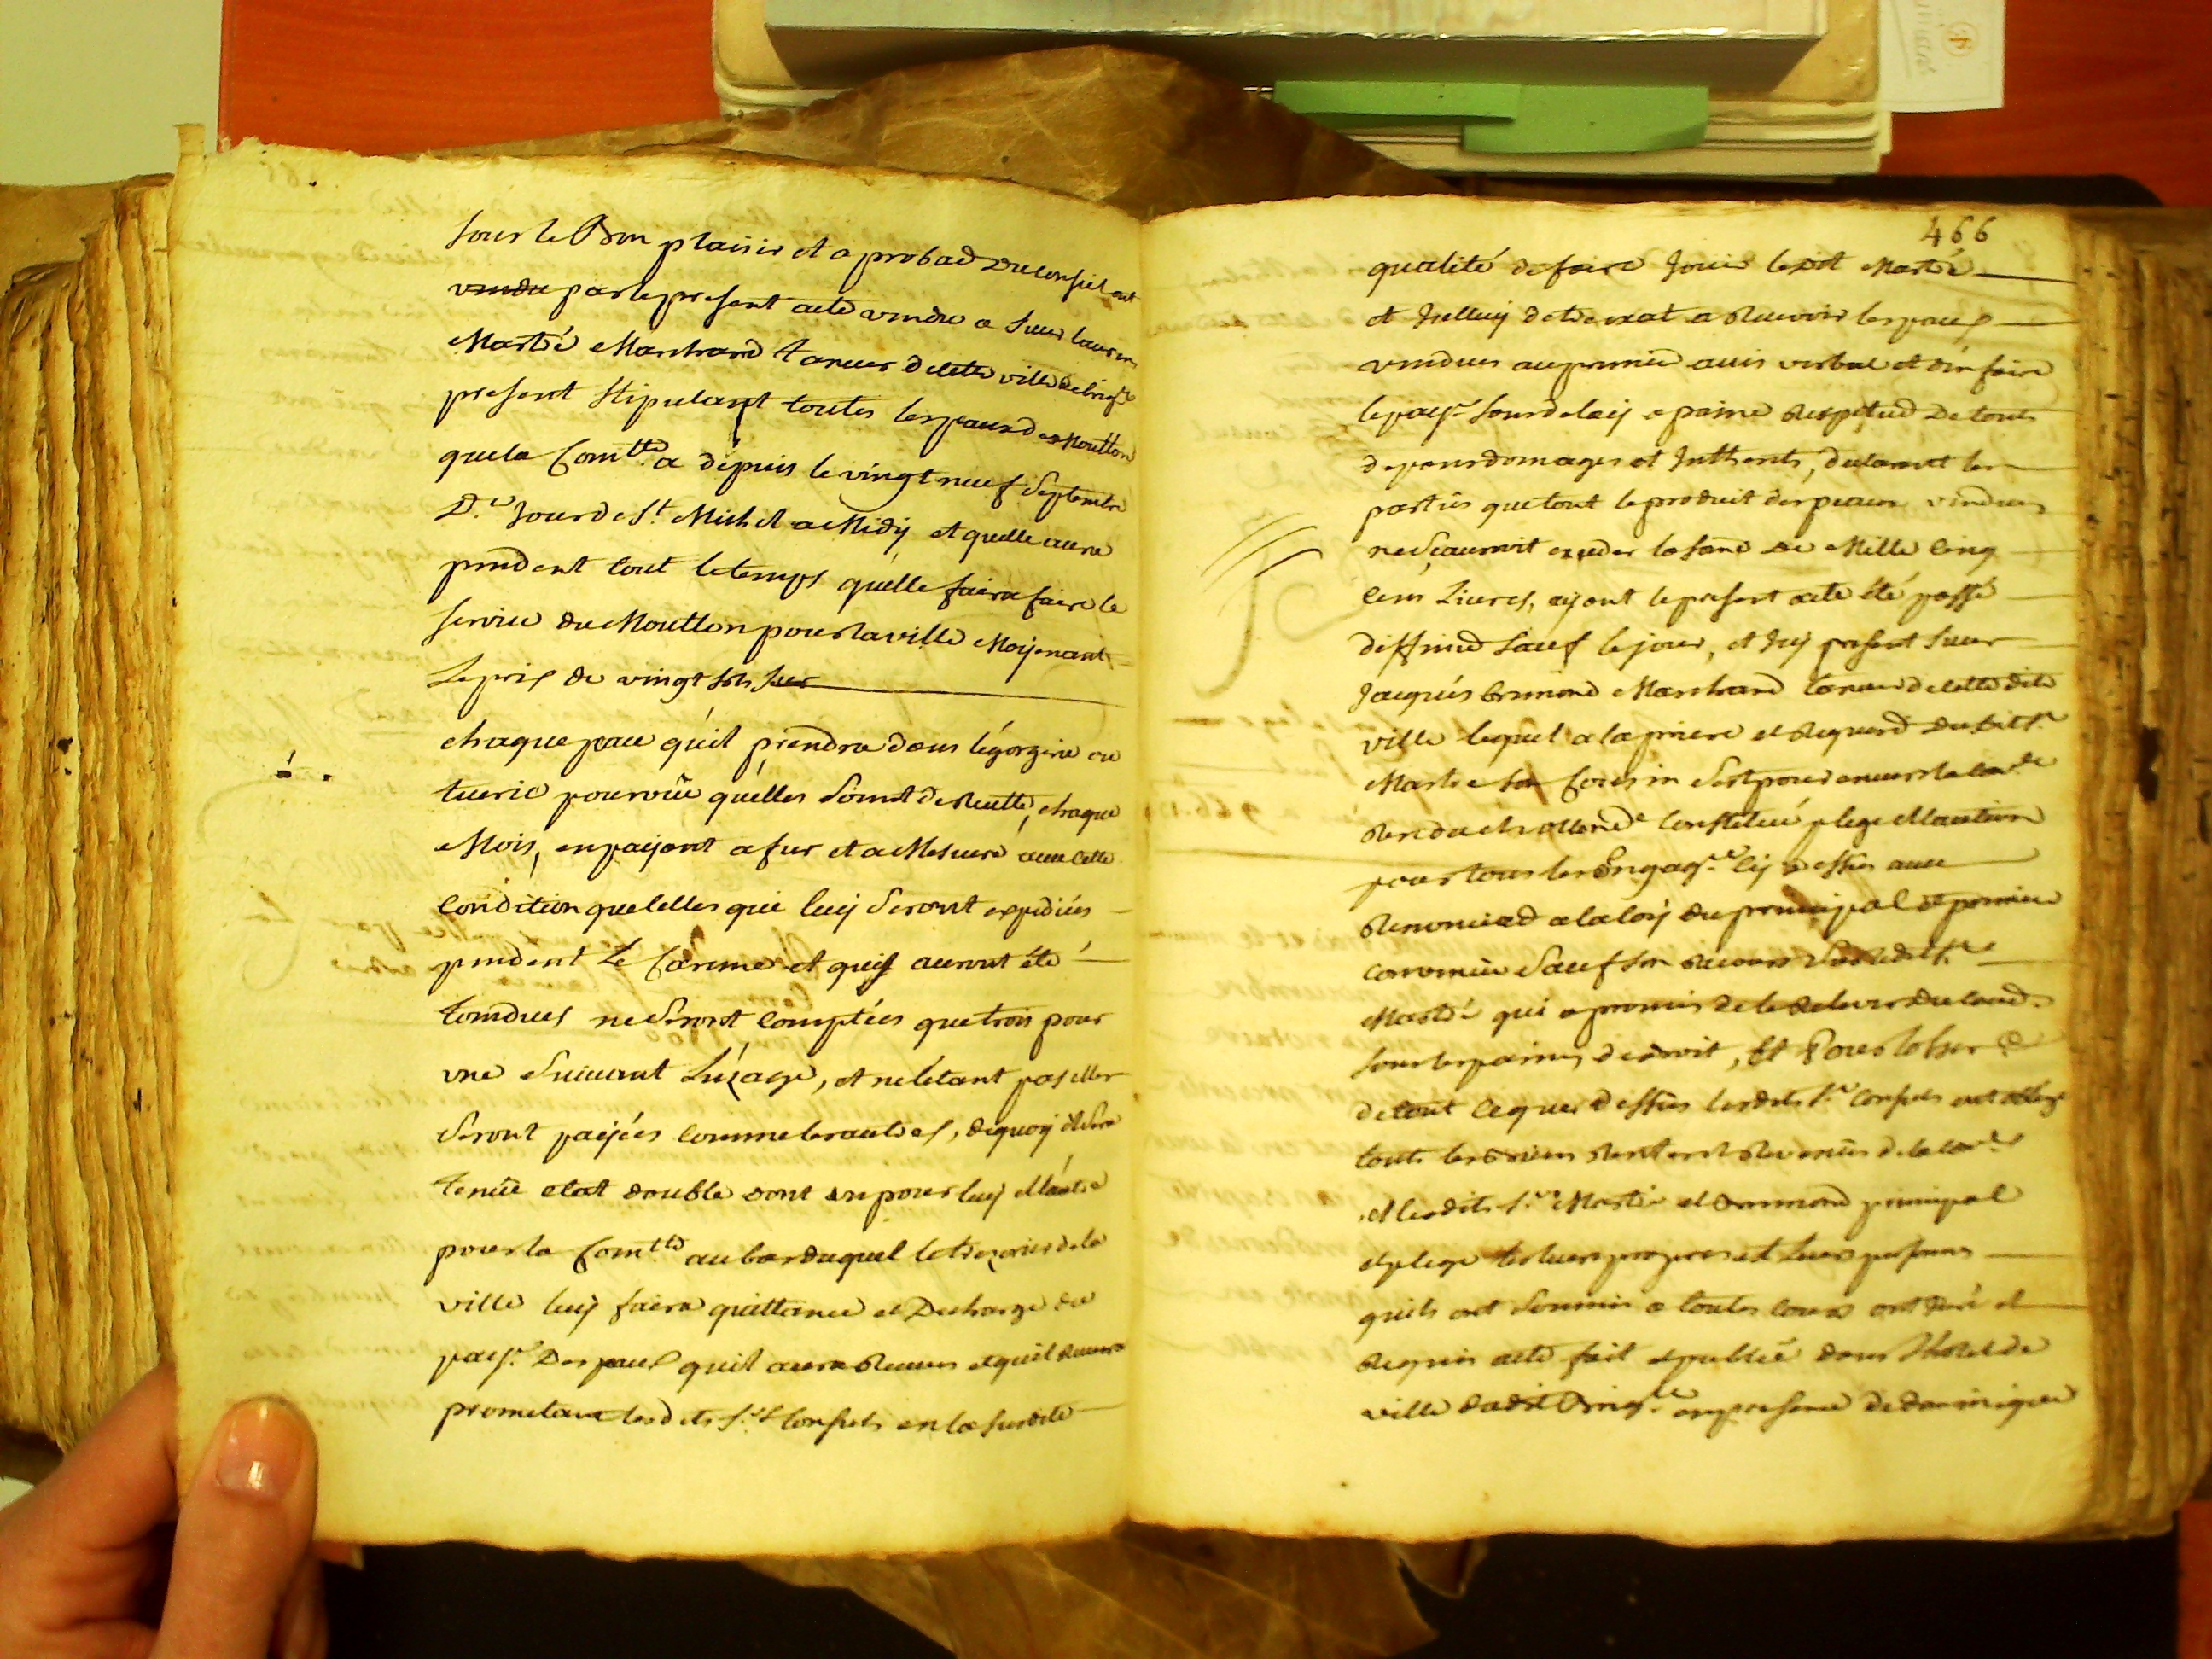 sous le Bon plaisir et aprobaõn du conseil ont
vendu par le present acte vendu a sieur laurens
Martré Marchand tanur de cette ville de brig.lle
present stipulant toutes les peaux de Moutton
que la Com.tté a depuis le vingt neuf septembre
D.er jour de S.t Michel a Midÿ et quelle aura
pendent tout le temps quélle faira faire le
service du Moutton pour la ville Moÿenant
Le prix de vingt sols sur
chaque peau qu'il prendra dans légorgerie ou
tuerie pourvûe quélles soint de recette, chaque
Mois, en paÿant a fur et a Mesure avec cette
Condition que celles qui luÿ seront expediées
pendent Le Careme et qui auront été
tondues ne seront comptées que trois pour
une suivant Lúzage, et ne létant pas elles
seront paÿées comme les autres, de quoÿ il sera
tenüe etat double dont un pour luÿ et láutre
pour la Com.tté au bas duquel le trezorier de la
ville luÿ faira quittance et Decharge du
paÿ.t Des peaux quil aura receues et quil recevra
prometant lesdits S.rs Consuls en la susdite
466
qualité de faire Jouir ledit Martré
et Jcelluÿ de tenir etat a recevoir les peaux
vendues au premier avis verbal et d'en faire
le paÿ.t sous delaÿ a peine respetud De touts
depens domages et Intherets, declarant les
parties que tout le produit des peaux vendues
ne scauroit exceder la some de Mille Cinq
Cens Livres, aÿant le present acte été passé
diffinid sauf le jour, et Jcÿ present sieur
Jacques Grimond Marchand tanur de cette dite
ville lequel a la priere et requeste du dit S.r
Martre son Cousin s'est pour et envers la Com.té
rendu et constitué plege et caution
pour tous les Engag.ts cÿ dessus avec
renonciaõn a la loÿ du principal et premier
convenir sauf son recours sur ledit S.r
Martré qui a promis de le relever du caud.
sous les peines de droit, Et Pour lobser.on
de tout ce que dessus lesdits S.rs Consuls ont obligé
touts les biens rentes et revenus de la Com.té
et lesdits S.rs Martré et Grimond principal
et plege les leurs propres et leurs personnes
quils ont soumis a toutes cours ont juré et
requis acte fait et publié dans lhotel de
ville dudit Brig.lle en presence de dominique